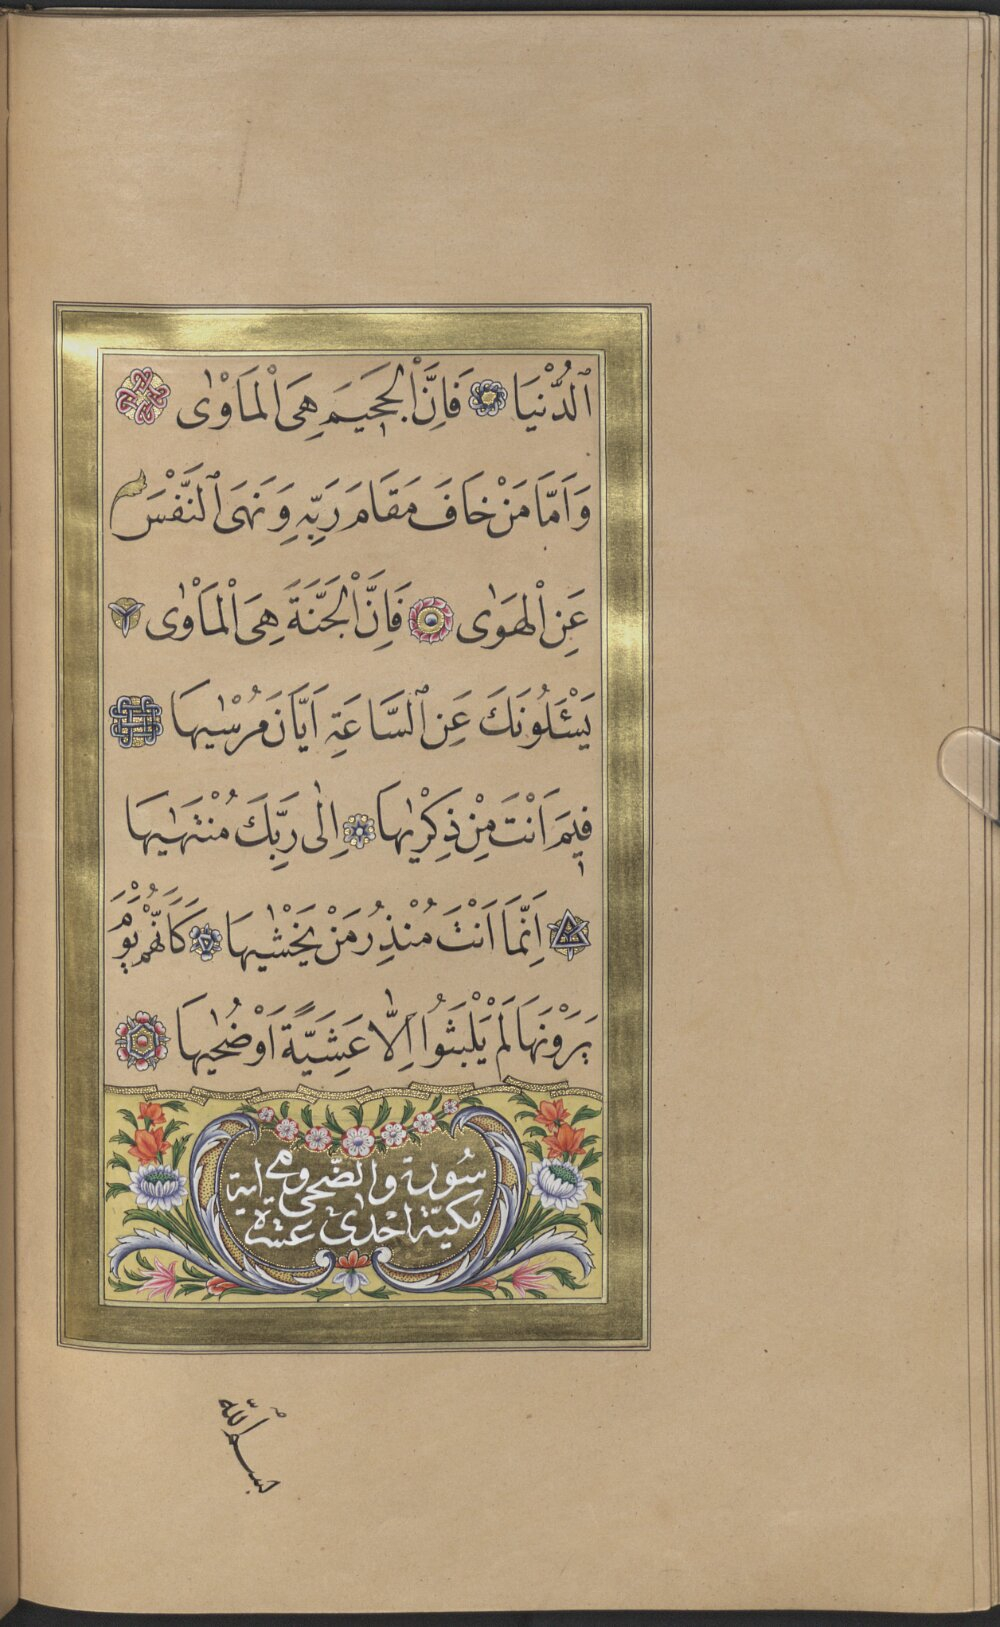 ٱلدُّنْيَا فَاِنَّ الْجَحِيمَ هِيَ الْمَاْوٰى
وَاَمَّا مَنْ خَافَ مَقَامَ رَبِّهِ وَنَهَى ٱلنَّفْسَ
عَنِ الْهَوٰى فَاِنَّ الْجَنَّةَ هِيَ الْمَاْوٰى
يَسْـَٔلُونَكَ عَنِ ٱلسَّاعَةِ اَيَّانَ مُرْسٰيهَا
فِيمَ اَنْتَ مِنْ ذِكْرٰيهَا اِلٰى رَبِّكَ مُنْتَهٰيهَا
اِنَّمَا اَنْتَ مُنْذِرُ مَنْ يَخْشٰيهَا كَاَنَّهُمْ يَوْمَ
يَرَوْنَهَا لَمْ يَلْبَثُوا اِلَّا عَشِيَّةً اَوْ ضُحٰيهَا
سُورة والضّحى وهي
مكيّة احدى عشرة اية
بسم الله